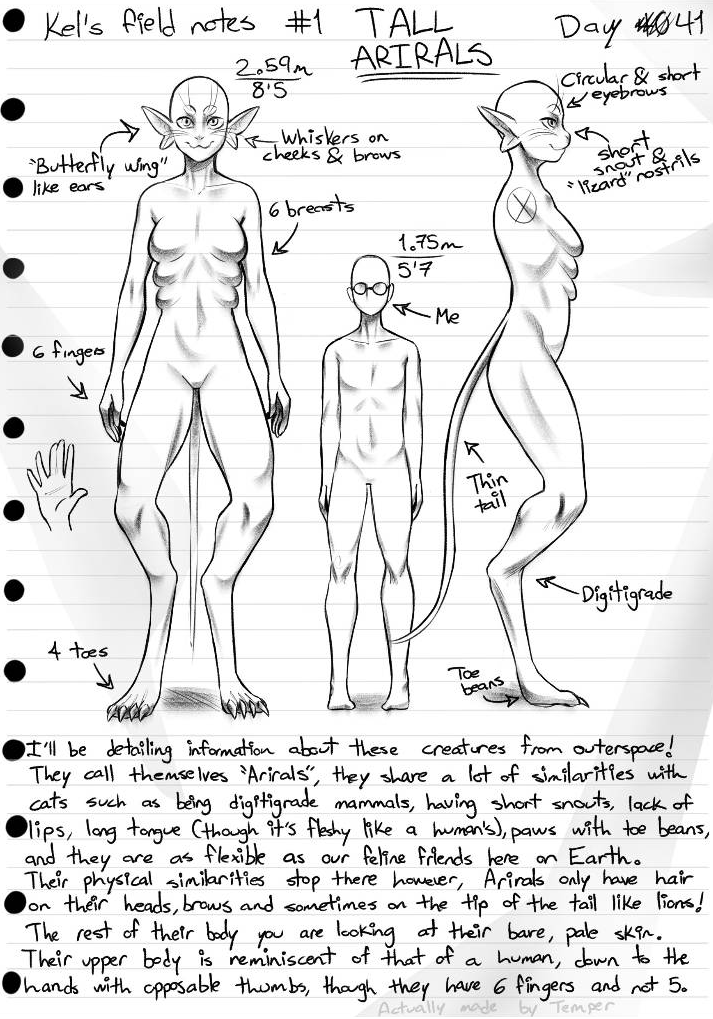 Kel's field notes #1 TALL ARIRALS Day 41
2.59m
8'5
Circular & short
eyebrows
"Butterfly wing"
like ears
Whiskers on
cheeks & brows
short
snout &
"lizard" nostrils
6 breasts
1.75m
5'7
Me
6 fingers
Thin
tail
Digitigrade
4 toes
Toe
beans
I'll be detailing information about these creatures from outerspace!
They call themselves "Arirals", they share a lot of similarities with
cats such as being digitigrade mammals, having short snouts, lack of
lips, long tongue (though it's fleshy like a human's), paws with toe beans,
and they are as flexible as our feline friends here on Earth.
Their physical similarities stop there however, Arirals only have hair
on their heads, brows and sometimes on the tip of the tail like lions!
The rest of their body you are looking at their bare, pale skin.
Their upper body is reminiscent of that of a human, down to the
hands with opposable thumbs, though they have 6 fingers and not 5.
Actually made by Temper